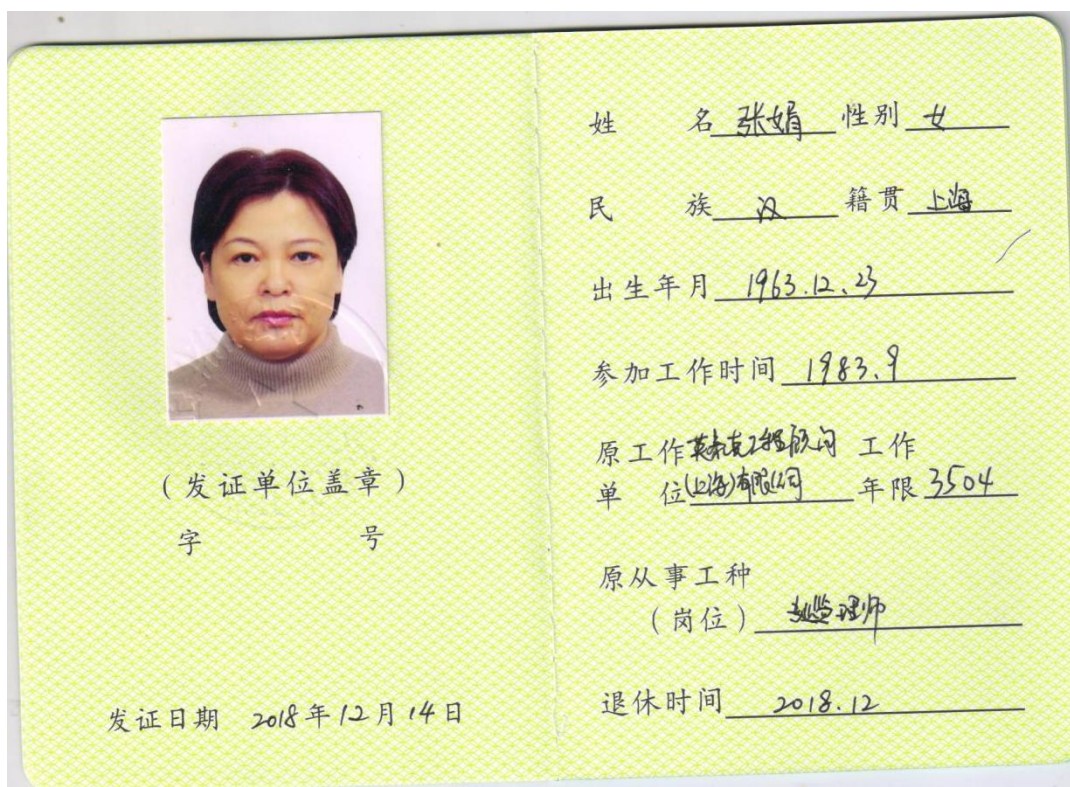 （发证单位盖章）
字 号
发证日期 2018年12月14日
姓 名 张娟 性别 女
民 族 汉 籍贯 上海
出生年月 1963.12.23
参加工作时间 1983.9
原工作 工程顾问 工作
单 位 (上海)有限公司 年限 3504
原从事工种
（岗位） 专业监理师
退休时间 2018.12